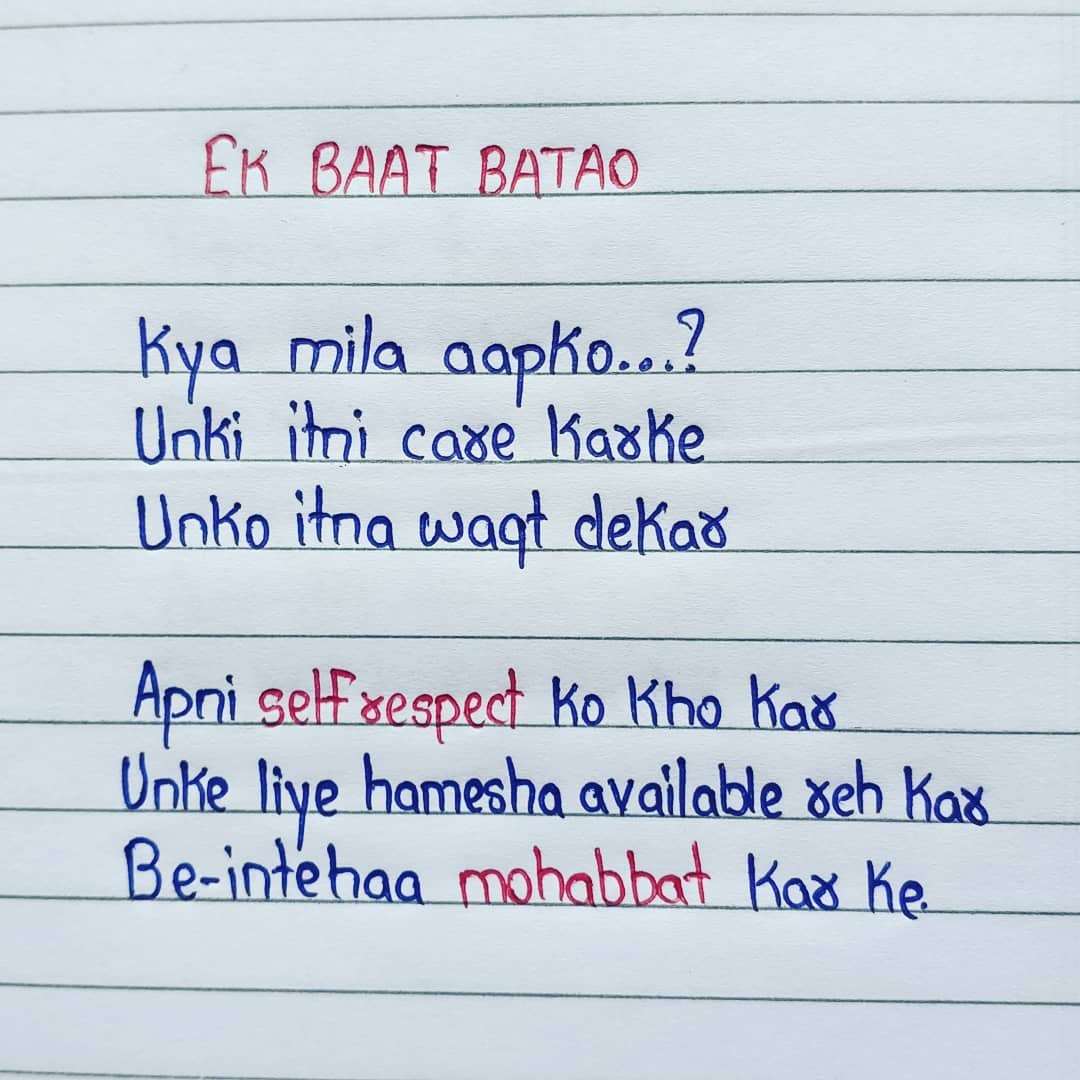 EK BAAT BATAO
Kya mila aapko...?
Unki itni care Karke
Unko itna waqt dekar
Apni self respect ko kho kar
Unke liye hamesha available reh kar
Be-intehaa mohabbat kar ke.